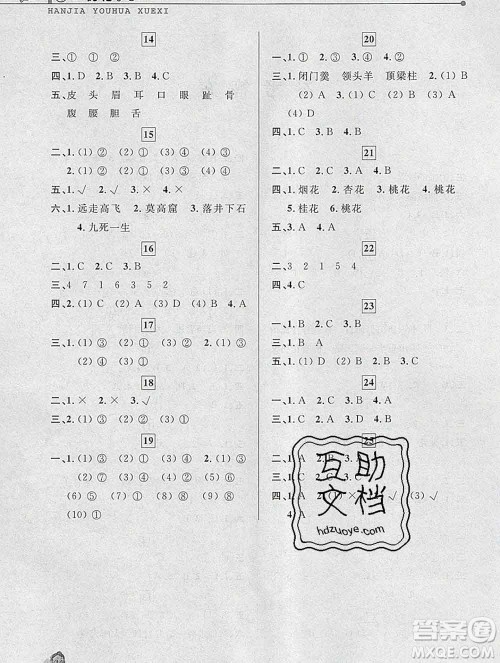 HANJIA YOUHUA XUEXI
14
三、① ② ① ②
四、1. B 2. A 3. B 4. C
五、皮 头 眉 耳 口 眼 趾 骨
腹 腰 胆 舌
15
二、1. (1) ② (2) ① (3) ① (4) ②
2. (1) ① (2) ② (3) ③
五、1. √ 2. √ 3. × 4. ×
六、1. 远走高飞 2. 莫高窟 3. 落井下石
4. 九死一生
16
二、1. C 2. B 3. B
三、4 7 1 6 3 5 2
四、2. (1) C (2) A (3) D (4) B 4. A
17
二、1. (1) ③ (2) ① (3) ② 2. (1) ③
(2) ① (3) ②
三、(1) ① (2) ② (3) ① (4) ②
(5) ①
18
二、1. × 2. × 3. √
三、1. C 2. B 3. A 4. B
19
三、1. (1) ③ (2) ① (3) ② 2. (1) ③
(2) ④ (3) ① (4) ② (5) ⑦
(6) ⑤ (7) ⑥ (8) ⑧ (9) ⑨
(10) ①
20
二、1. B 2. C 3. A 4. C
三、1. 闭门羹 领头羊 顶梁柱 2. (1) B
(2) A (3) C 3. (1) D (2) C (3) A
(4) B
四、1. C 2. A 3. A 4. A
21
二、1. B 2. A 3. B 4. C
四、1. 烟花 2. 杏花 3. 桃花 4. 桃花
5. 桂花 6. 桃花
五、1. A 2. B 3. A
22
二、3 2 1 5 4
四、2. C 4. C
23
一、1. B 2. B 3. A
五、2. (1) D (2) C (3) A (4) B
24
二、1. A 2.
三、1. A 2. C
25
二、1. A 2.
三、1. C 2.
四、1. √
4. A
互助
文档
hdzuoye.com
答案圈
MXQE.COM